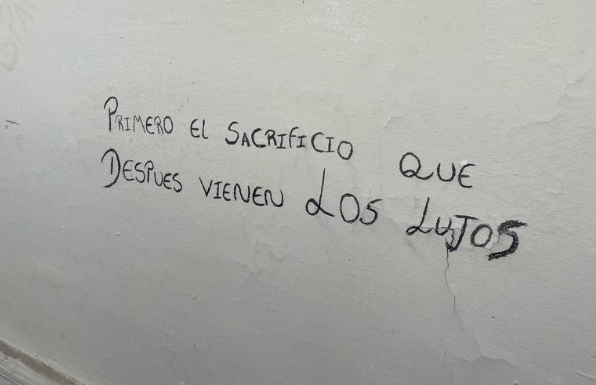 PRIMERO EL SACRIFICIO QUE
DESPUES VIENEN LOS LUJOS